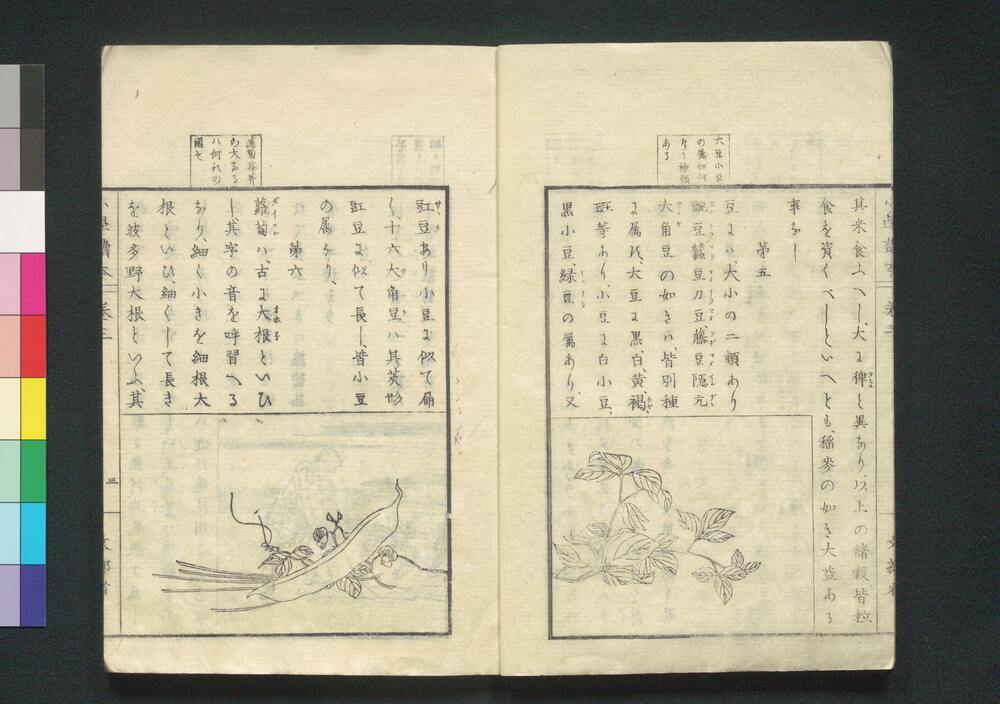 大豆小豆
の属如何
なる種類
ある
其米食ふべし、大に稗と異なり、以上の諸穀、皆粒
食を資くべしといへとも、稲麥の如き大益ある
事なし
第五
豆には、大小の二類あり
豌豆蠶豆刀豆、藤豆隠元
大角豆の如きは、皆別種
に属す、大豆に黒、白、黄褐、
斑等あり、小豆に白小豆、
黒小豆、緑豆の属あり、又
蘿蔔蕪菁
の大なる
ハ何れの
國そ
豇豆あり小豆に似て扁
く、十六大角豆ハ其莢形
豇豆に似て長し、皆小豆
の属なり、
第六
蘿蔔ハ、古は大根といひ
し其字の音を呼習へる
なり、細く小きを細根大
根といひ、細くして長き
を波多野大根といふ、其
小學讀本 巻三
三
文部省